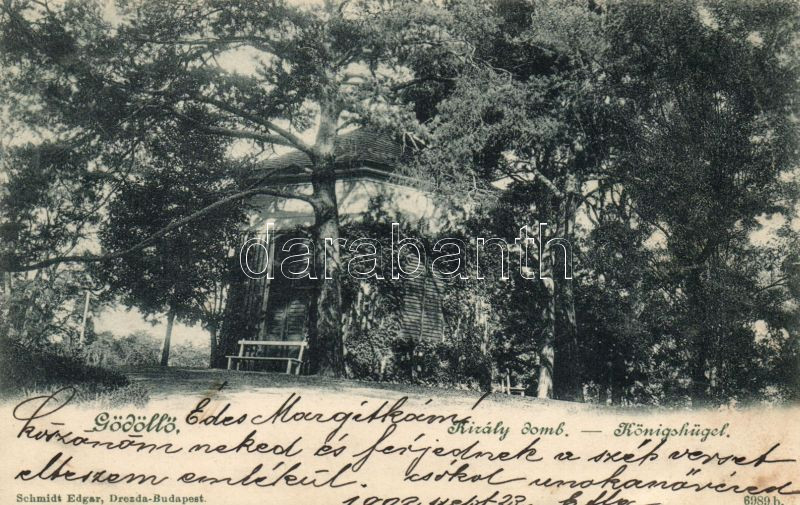 darabanth
Gödöllő,
Király domb. — Königshügel.
Edes Margitkám
Köszönöm neked és férjednek a szép verset
elteszem emlékül. csókol unokanővéred
1902 sept 23.
Schmidt Edgar, Drezda-Budapest.
6989 b.